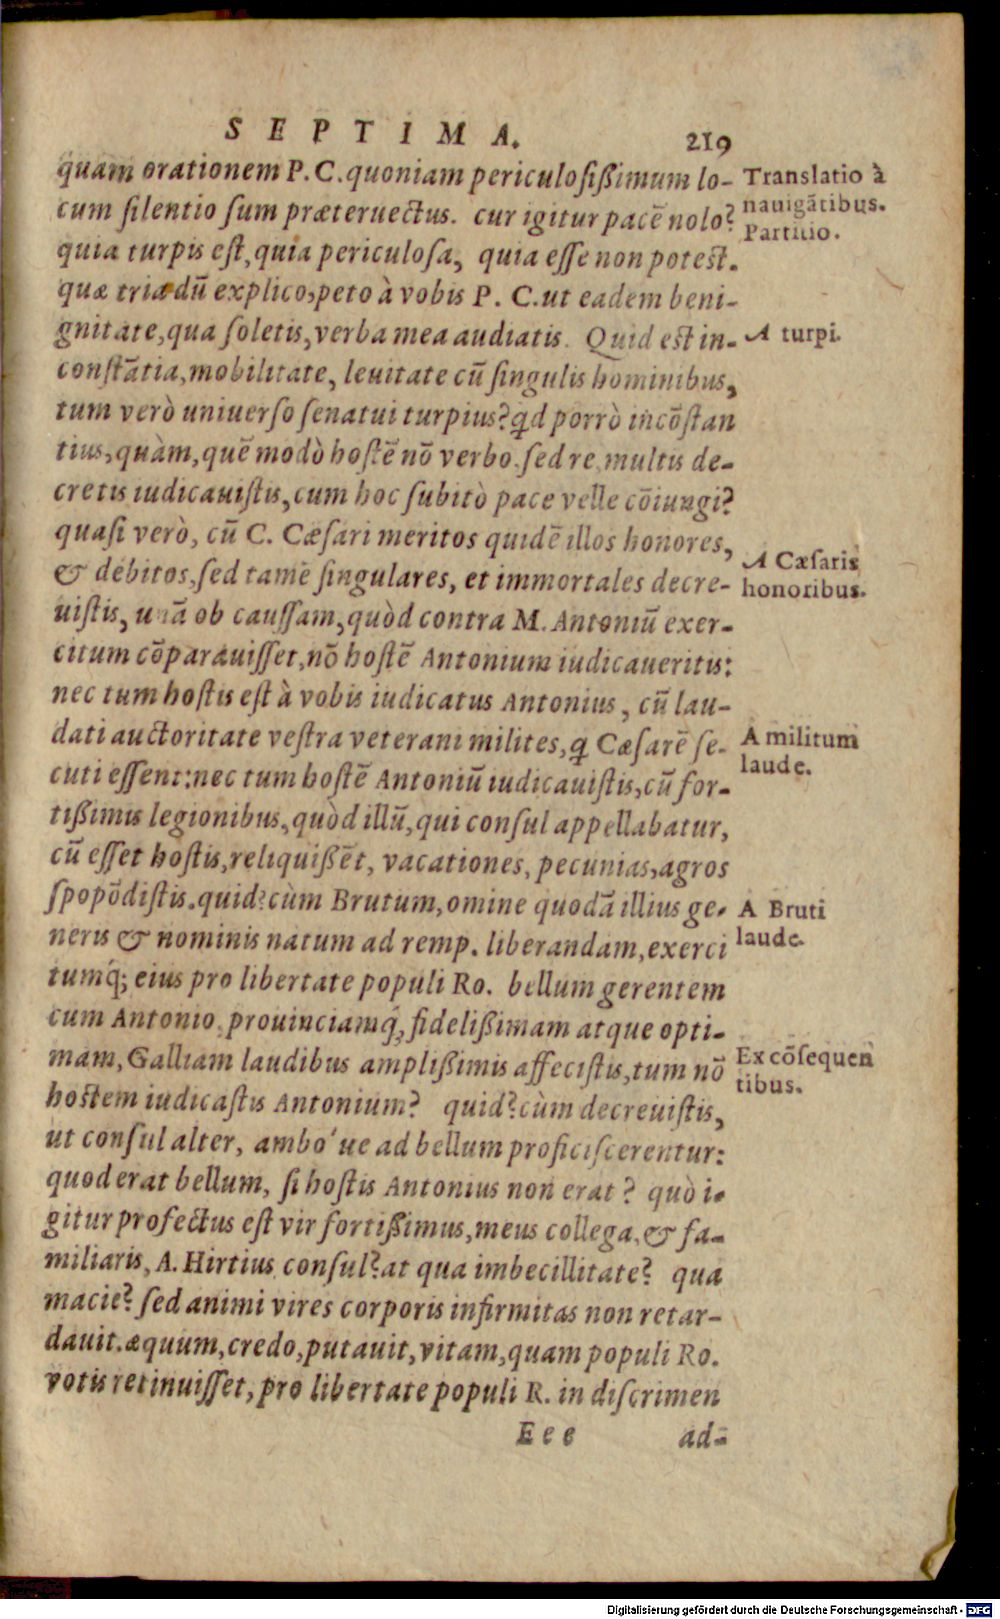 SEPTIMA. 219
quam orationem P. C. quoniam periculosißimum lo-
cum silentio sum præteruectus. cur igitur pacē nolo?
quia turpis est, quia periculosa, quia esse non potest.
quæ tria dū explico, peto à vobis P. C. ut eadem beni-
gnitate, qua soletis, verba mea audiatis. Quid est in-
constātia, mobilitate, leuitate cū singulis hominibus,
tum verò uniuerso senatui turpius? qd porrò incōstan
tius, quàm, quē modò hostē nō verbo sed re multis de-
cretis iudicauistis, cum hoc subitò pace velle cōiungi?
quasi verò, cū C. Cæsari meritos quidē illos honores,
& debitos, sed tamē singulares, et immortales decre-
uistis, unā ob caussam, quòd contra M. Antoniū exer-
citum cōparauisset, nō hostē Antonium iudicaueritis:
nec tum hostis est à vobis iudicatus Antonius, cū lau-
dati auctoritate vestra veterani milites, q Cæsarē se-
cuti essent: nec tum hostē Antoniū iudicauistis, cū for-
tißimis legionibus, quòd illū, qui consul appellabatur,
cū esset hostis, reliquißēt, vacationes, pecunias, agros
spopōdistis. quid? cùm Brutum, omine quodā illius ge-
neris & nominis natum ad remp. liberandam, exerci
tumq́; eius pro libertate populi Ro. bellum gerentem
cum Antonio, prouinciamq́; fidelißimam atque opti-
mam, Galliam laudibus amplißimis affecistis, tum nō
hostem iudicastis Antonium? quid? cùm decreuistis,
ut consul alter, ambo'ue ad bellum proficiscerentur:
quod erat bellum, si hostis Antonius non erat? quò i-
gitur profectus est vir fortißimus, meus collega, & fa-
miliaris, A. Hirtius consul? at qua imbecillitate? qua
macie? sed animi vires corporis infirmitas non retar-
dauit. æquum, credo, putauit, vitam, quam populi Ro.
votis retinuisset, pro libertate populi R. in discrimen
Eee ad-
Translatio à
nauigātibus.
Partitio.
A turpi.
A Cæsaris
honoribus.
A militum
laude.
A Bruti
laude.
Ex cōsequen
tibus.
Digitalisierung gefördert durch die Deutsche Forschungsgemeinschaft - DFG